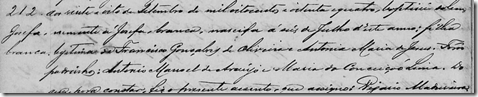 212 dos vinte e sete de Setembro de mil oitocentos e oitenta e quatro, baptisei
Josefa, branca, nascida a seis de Julho d'este anno; filha
branca, legitima de Francisco Gonçalves de Oliveira e Antonia Maria de Jesus. Foram
padrinhos: Antonio Manoel de Araujo e Maria da Conceição Lima. Do
que, para constar, fiz o presente assento, que assigno. Vigario